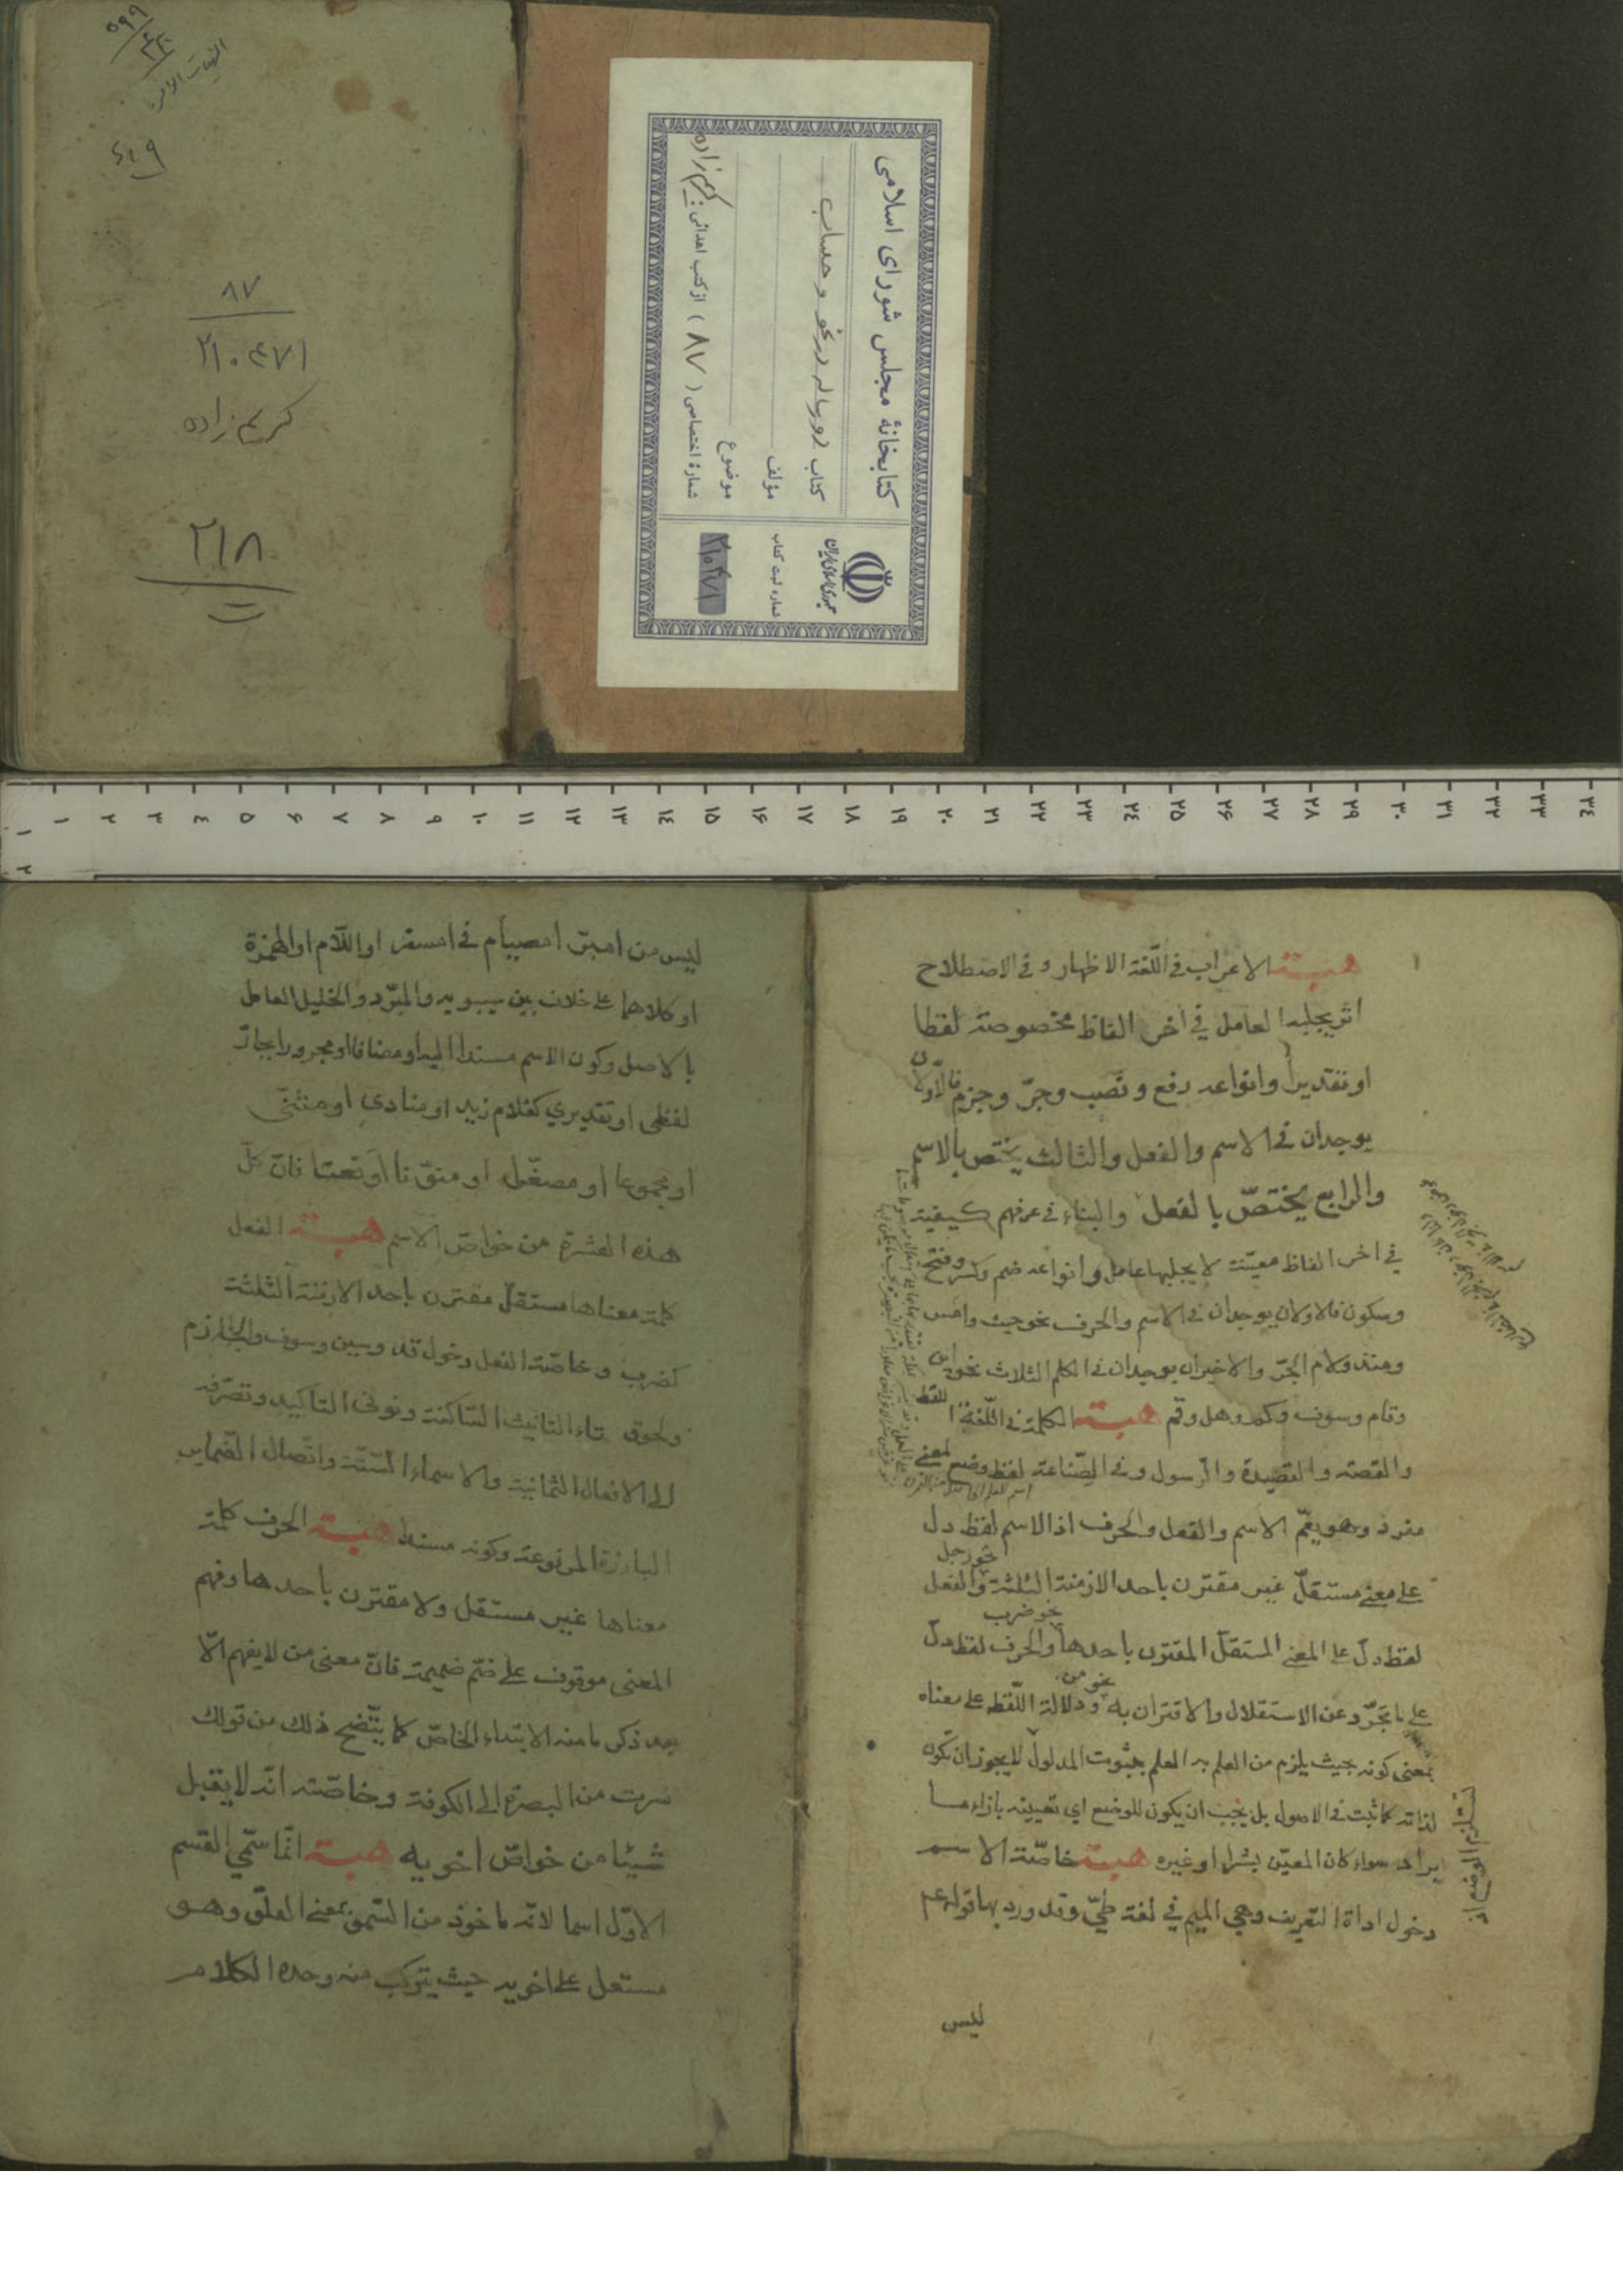 ۵۹۹
۶۱۹
۸۷
۲۱۰۴۷۱
کریم زاده
۲۱۸
کتابخانهٔ مجلس شورای اسلامی
کتاب دو رساله در نحو و حساب
مؤلف
موضوع
شمارهٔ اختصاصی ( ۸۷ ) از کتب اهدائی: کریم زاده
جمهوری اسلامی ایران
شماره ثبت کتاب
۲۱۰۴۷۱
۱ ۲ ۳ ۴ ۵ ۶ ۷ ۸ ۹ ۱۰ ۱۱ ۱۲ ۱۳ ۱۴ ۱۵ ۱۶ ۱۷ ۱۸ ۱۹ ۲۰ ۲۱ ۲۲ ۲۳ ۲۴ ۲۵ ۲۶ ۲۷ ۲۸ ۲۹ ۳۰ ۳۱ ۳۲ ۳۳ ۳۴
۱ ۲
هبة الاعراب في اللّغة الاظهار وفي الاصطلاح
اثر يجلبه العامل في اخر الفاظ مخصوصة لفظا
او تقديرا وانواعه رفع ونصب وجرّ وجزم فالاوّلان
يوجدان في الاسم والفعل والثالث يختص بالاسم
والرابع يختصّ بالفعل والبناء في عرفهم كيفية
في اخر الفاظ معيّنة لا يجلبها عامل وانواعه ضم وكسر وفتح
وسكون فالاولان يوجدان في الاسم والحرف نحو حيث وامس
ومنذ ولام الجرّ والاخيران يوجدان في الكلم الثلاث نحو اين
وقام وسوف وكم وهل وقم هبة الكلمة في اللّغة اللفظ
والقصة والقصيدة والرسول وفي الصّناعة لفظ وضع لمعنى
مفرد وهو يعمّ الاسم والفعل والحرف اذ الاسم لفظ دل
على معنى مستقلّ غير مقترن باحد الازمنة الثلثة نحو رجل والفعل
لفظ دلّ على المعنى المستقلّ المقترن باحدها نحو ضرب والحرف لفظ دلّ
على ما تجرّد عن الاستقلال والاقتران به نحو من ودلالة اللّفظ على معناه
بمعنى كونه بحيث يلزم من العلم به العلم بثبوت المدلول لا يجوز ان تكون
لذاته كما ثبت في الاصول بل يجب ان يكون للوضع اي تعيينه بازاء ما
يراد سواء كان المعيّن بشرا او غيره هبة خاصّة الاسم
دخول اداة التعريف وهي الميم في لغة طيّ وقد ورد بها قوله عم
ليس
ليس من امبر امصيام في امسفر او اللّام او الهمزة
او كلاهما على خلاف بين سيبويه والمبرّد والخليل العامل
بالاصل وكون الاسم مسندا اليه او مضافا او مجرورا بجارّ
لفظي او تقديري كغلام زيد او منادى او مثنّى
او مجموعا او مصغّرا او منوّنا او نعتا فانّ كلّ
هذه العشرة من خواصّ الاسم هبة الفعل
كلمة معناها مستقلّ مقترن باحد الازمنة الثلثة
كضرب وخاصّة الفعل دخول قد وسين وسوف والجازم
ولحوق تاء التانيث الساكنة ونوني التاكيد وتصرّفه
الى الافعال الثمانية والاسماء السّتّة واتّصال الضّماير
البارزة المرفوعة وكونه مسندا هبة الحرف كلمة
معناها غير مستقل ولا مقترن باحدها وفهم
المعنى موقوف على ضمّ ضميمة فانّ معنى من لا يفهم الّا
بعد ذكر ما منه الابتداء الخاصّ كما يتّضح ذلك من قولك
سرت من البصرة الى الكوفة وخاصّته انّه لا يقبل
شيئا من خواصّ اخويه هبة انّما سمّي القسم
الاوّل اسما لانّه ماخوذ من السّموّ بمعنى العلوّ وهو
مستعل على اخويه حيث يتركب منه وحده الكلام